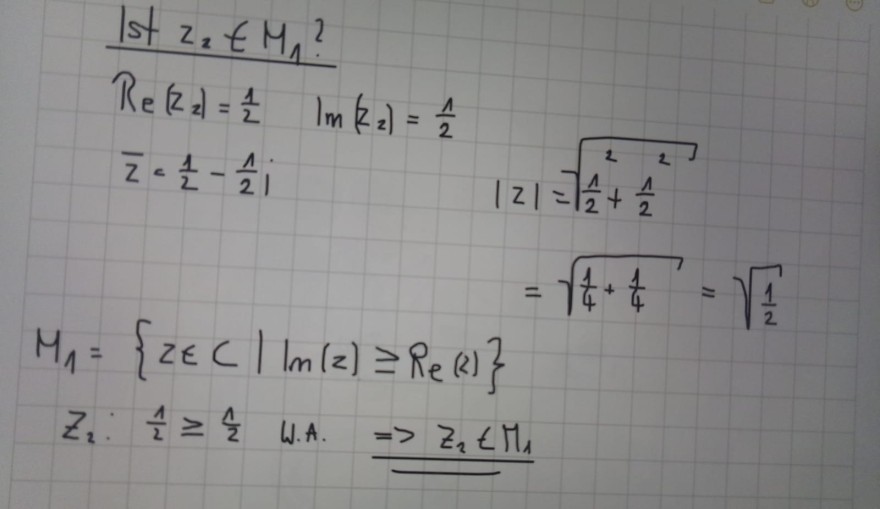 Ist z₂ ∈ M₁?
Re(z₂) = 1/2 Im(z₂) = 1/2
z̅ = 1/2 - 1/2 i
|z| = √(1/2² + 1/2²)
= √(1/4 + 1/4) = √(1/2)
M₁ = {z ∈ C | Im(z) ≥ Re(z)}
z₂: 1/2 ≥ 1/2 W.A. => z₂ ∈ M₁